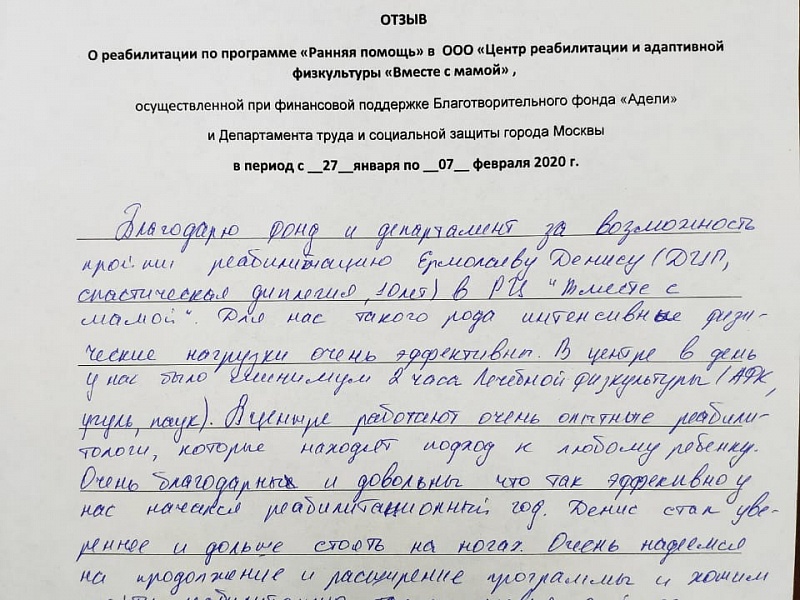 ОТЗЫВ
О реабилитации по программе «Ранняя помощь» в ООО «Центр реабилитации и адаптивной
физкультуры «Вместе с мамой» ,
осуществленной при финансовой поддержке Благотворительного фонда «Адели»
и Департамента труда и социальной защиты города Москвы
в период с __27__января по __07__ февраля 2020 г.
Благодарю фонд и департамент за возможность
пройти реабилитацию Ермолаеву Денису (ДЦП,
спастическая диплегия, 10лет) в РЦ "Вместе с
мамой". Для нас такого рода интенсивные физи-
ческие нагрузки очень эффективны. В центре в день
у нас было минимум 2 часа Лечебной физкультуры (АФК,
угуль, паук). В центре работают очень опытные реабили-
тологи, которые находят подход к любому ребенку.
Очень благодарны и довольны что так эффекивно у
нас начался реабилитационный год. Денис стал уве-
реннее и дольше стоять на ногах. Очень надеемся
на продолжение и расширение программы и хотим